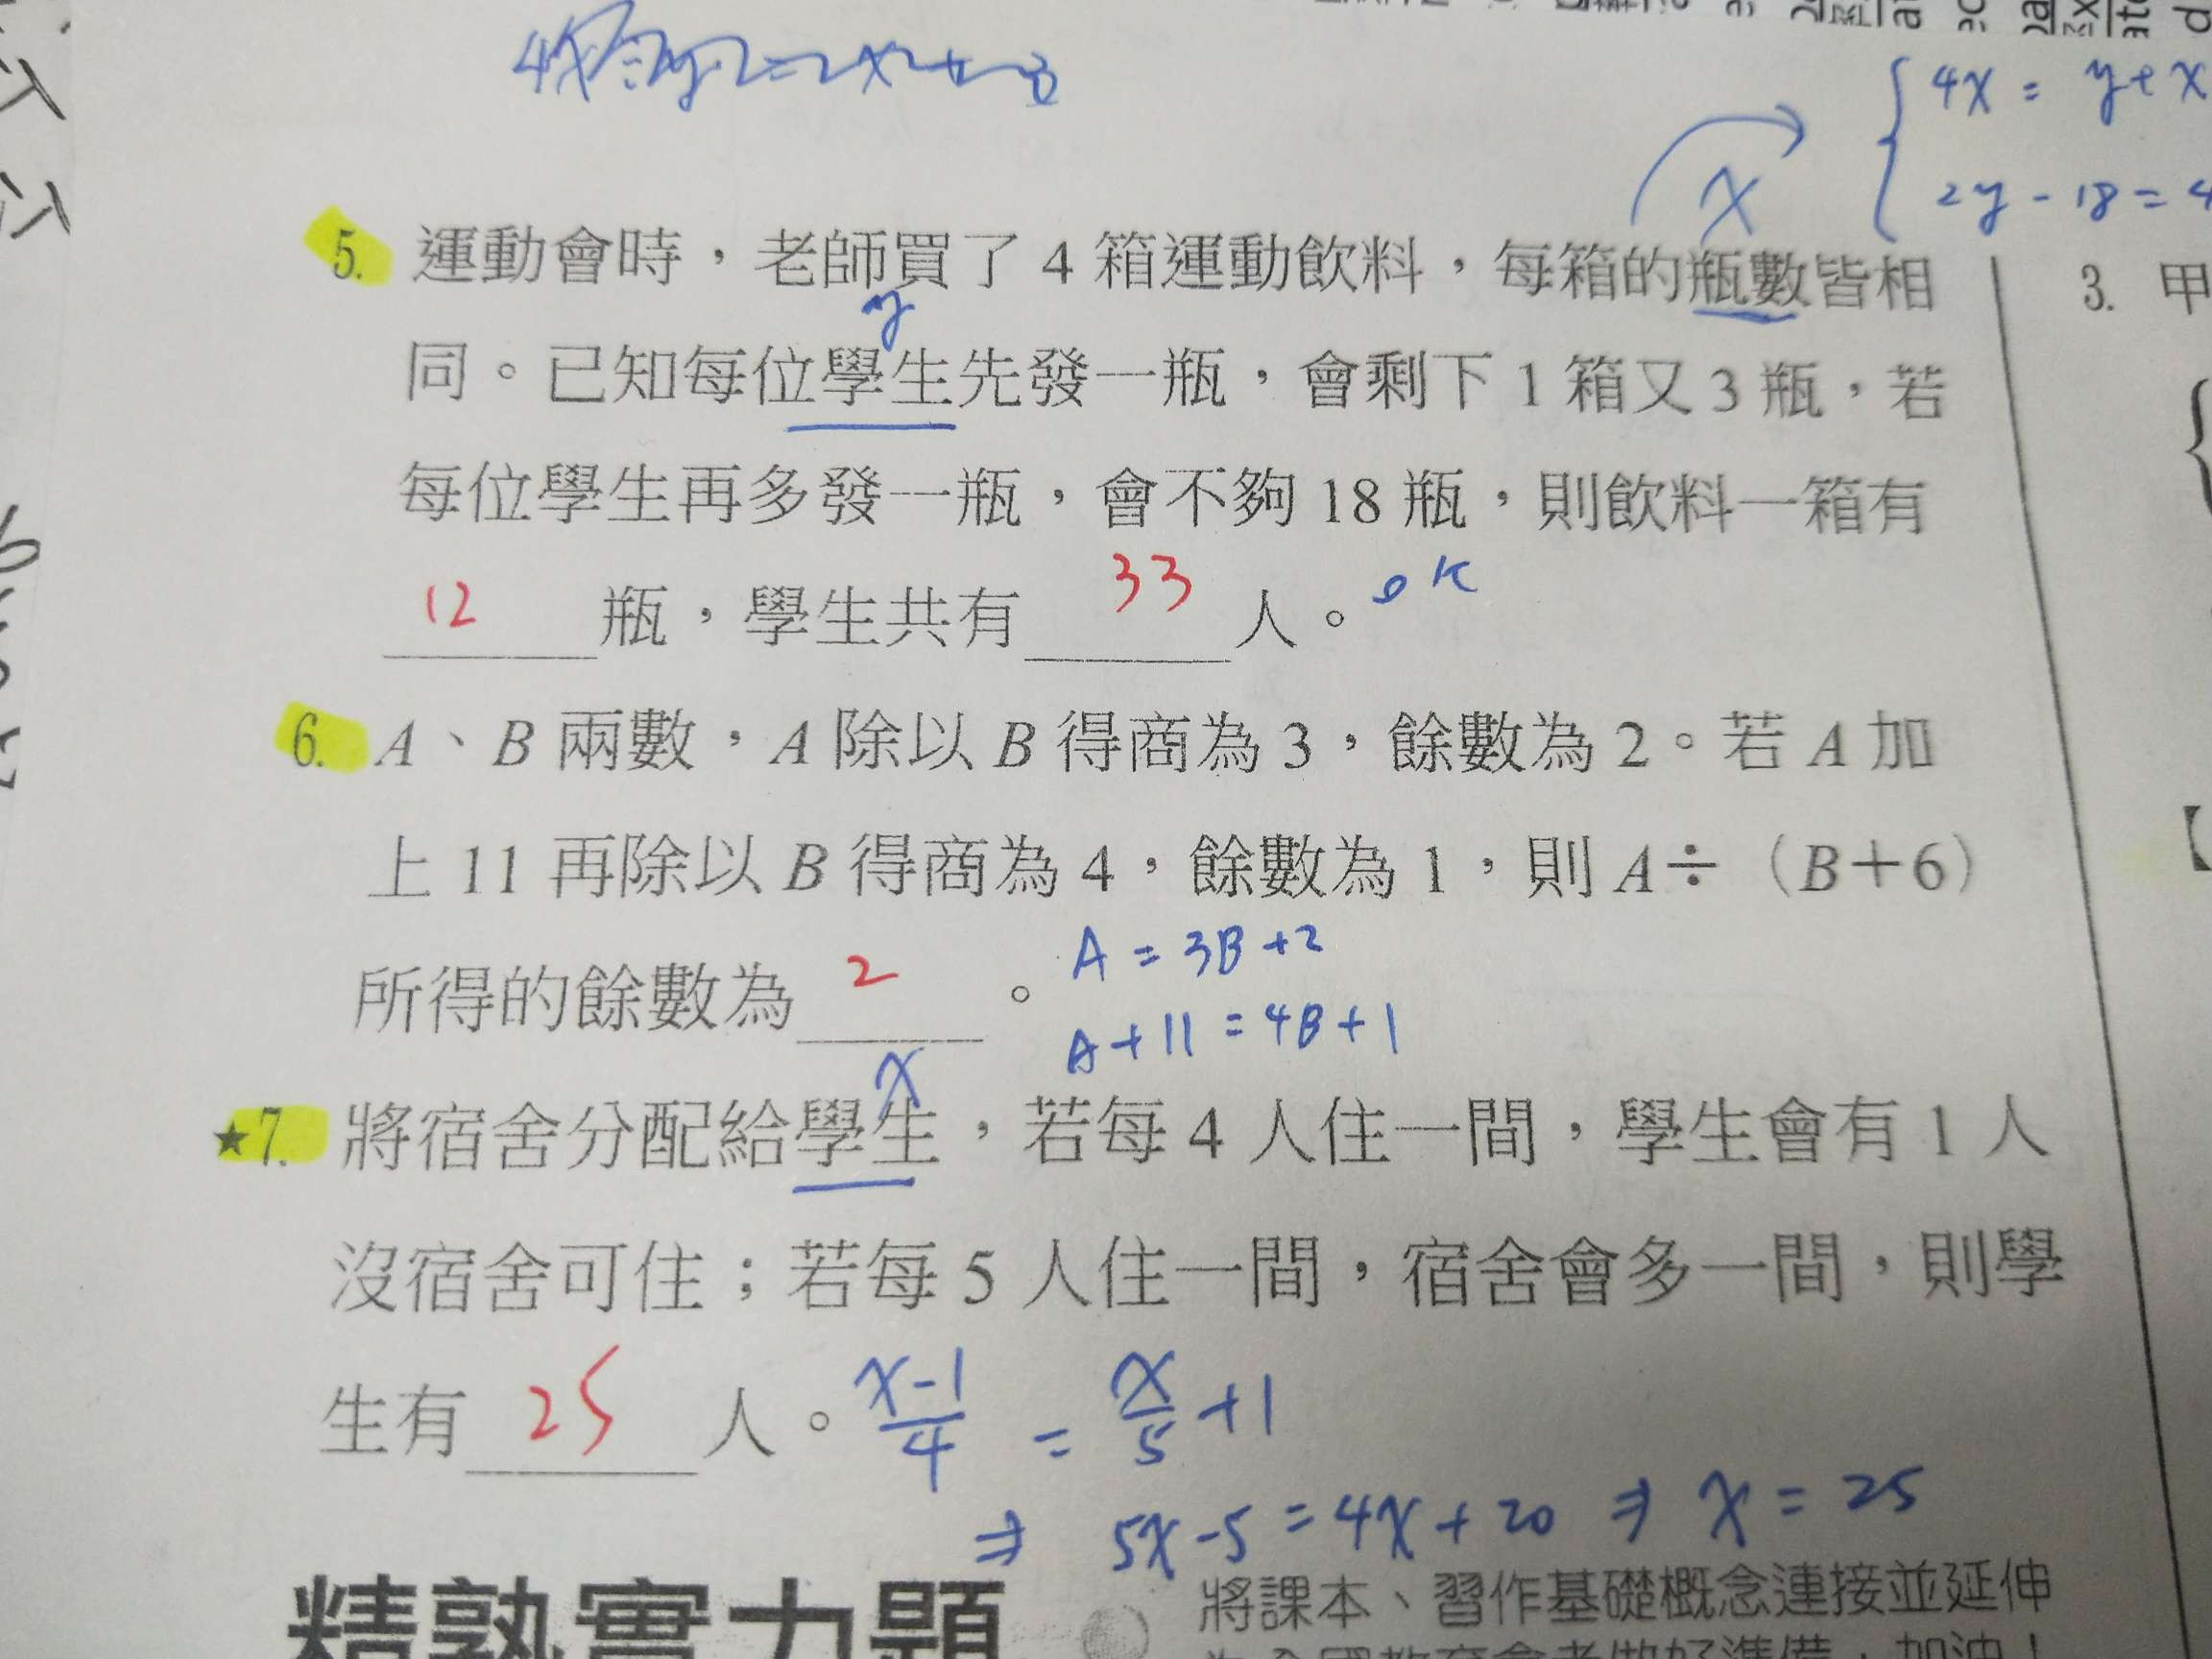 4x = y + x
x
2y - 18 = 4
5. 運動會時，老師買了 4 箱運動飲料，每箱的瓶數皆相
3. 甲
y
同。已知每位學生先發一瓶，會剩下 1 箱又 3 瓶，若
每位學生再多發一瓶，會不夠 18 瓶，則飲料一箱有
12 瓶，學生共有 33 人。 ok
6. A、B 兩數，A 除以 B 得商為 3，餘數為 2。若 A 加
上 11 再除以 B 得商為 4，餘數為 1，則 A÷（B＋6）
所得的餘數為 2 。 A = 3B + 2
A + 11 = 4B + 1
x
★7. 將宿舍分配給學生，若每 4 人住一間，學生會有 1 人
沒宿舍可住；若每 5 人住一間，宿舍會多一間，則學
生有 25 人。 x-1/4 = x/5 + 1
⇒ 5x - 5 = 4x + 20 ⇒ x = 25
精熟實力題
將課本、習作基礎概念連接並延伸